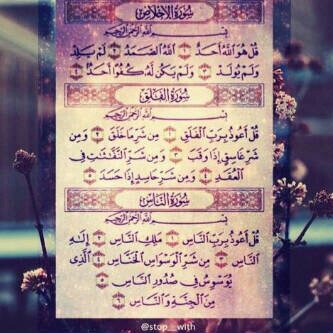 سُورَةُ الإِخْلَاصِ
بِسْمِ اللَّهِ الرَّحْمَٰنِ الرَّحِيمِ
قُلْ هُوَ اللَّهُ أَحَدٌ ١ اللَّهُ الصَّمَدُ ٢ لَمْ يَلِدْ
وَلَمْ يُولَدْ ٣ وَلَمْ يَكُن لَّهُ كُفُوًا أَحَدٌ ٤
سُورَةُ الفَلَقِ
بِسْمِ اللَّهِ الرَّحْمَٰنِ الرَّحِيمِ
قُلْ أَعُوذُ بِرَبِّ الْفَلَقِ ١ مِن شَرِّ مَا خَلَقَ ٢ وَمِن
شَرِّ غَاسِقٍ إِذَا وَقَبَ ٣ وَمِن شَرِّ النَّفَّاثَاتِ فِي
الْعُقَدِ ٤ وَمِن شَرِّ حَاسِدٍ إِذَا حَسَدَ ٥
سُورَةُ النَّاسِ
بِسْمِ اللَّهِ الرَّحْمَٰنِ الرَّحِيمِ
قُلْ أَعُوذُ بِرَبِّ النَّاسِ ١ مَلِكِ النَّاسِ ٢ إِلَٰهِ
النَّاسِ ٣ مِن شَرِّ الْوَسْوَاسِ الْخَنَّاسِ ٤ الَّذِي
يُوَسْوِسُ فِي صُدُورِ النَّاسِ ٥
مِنَ الْجِنَّةِ وَالنَّاسِ ٦
@stop__with